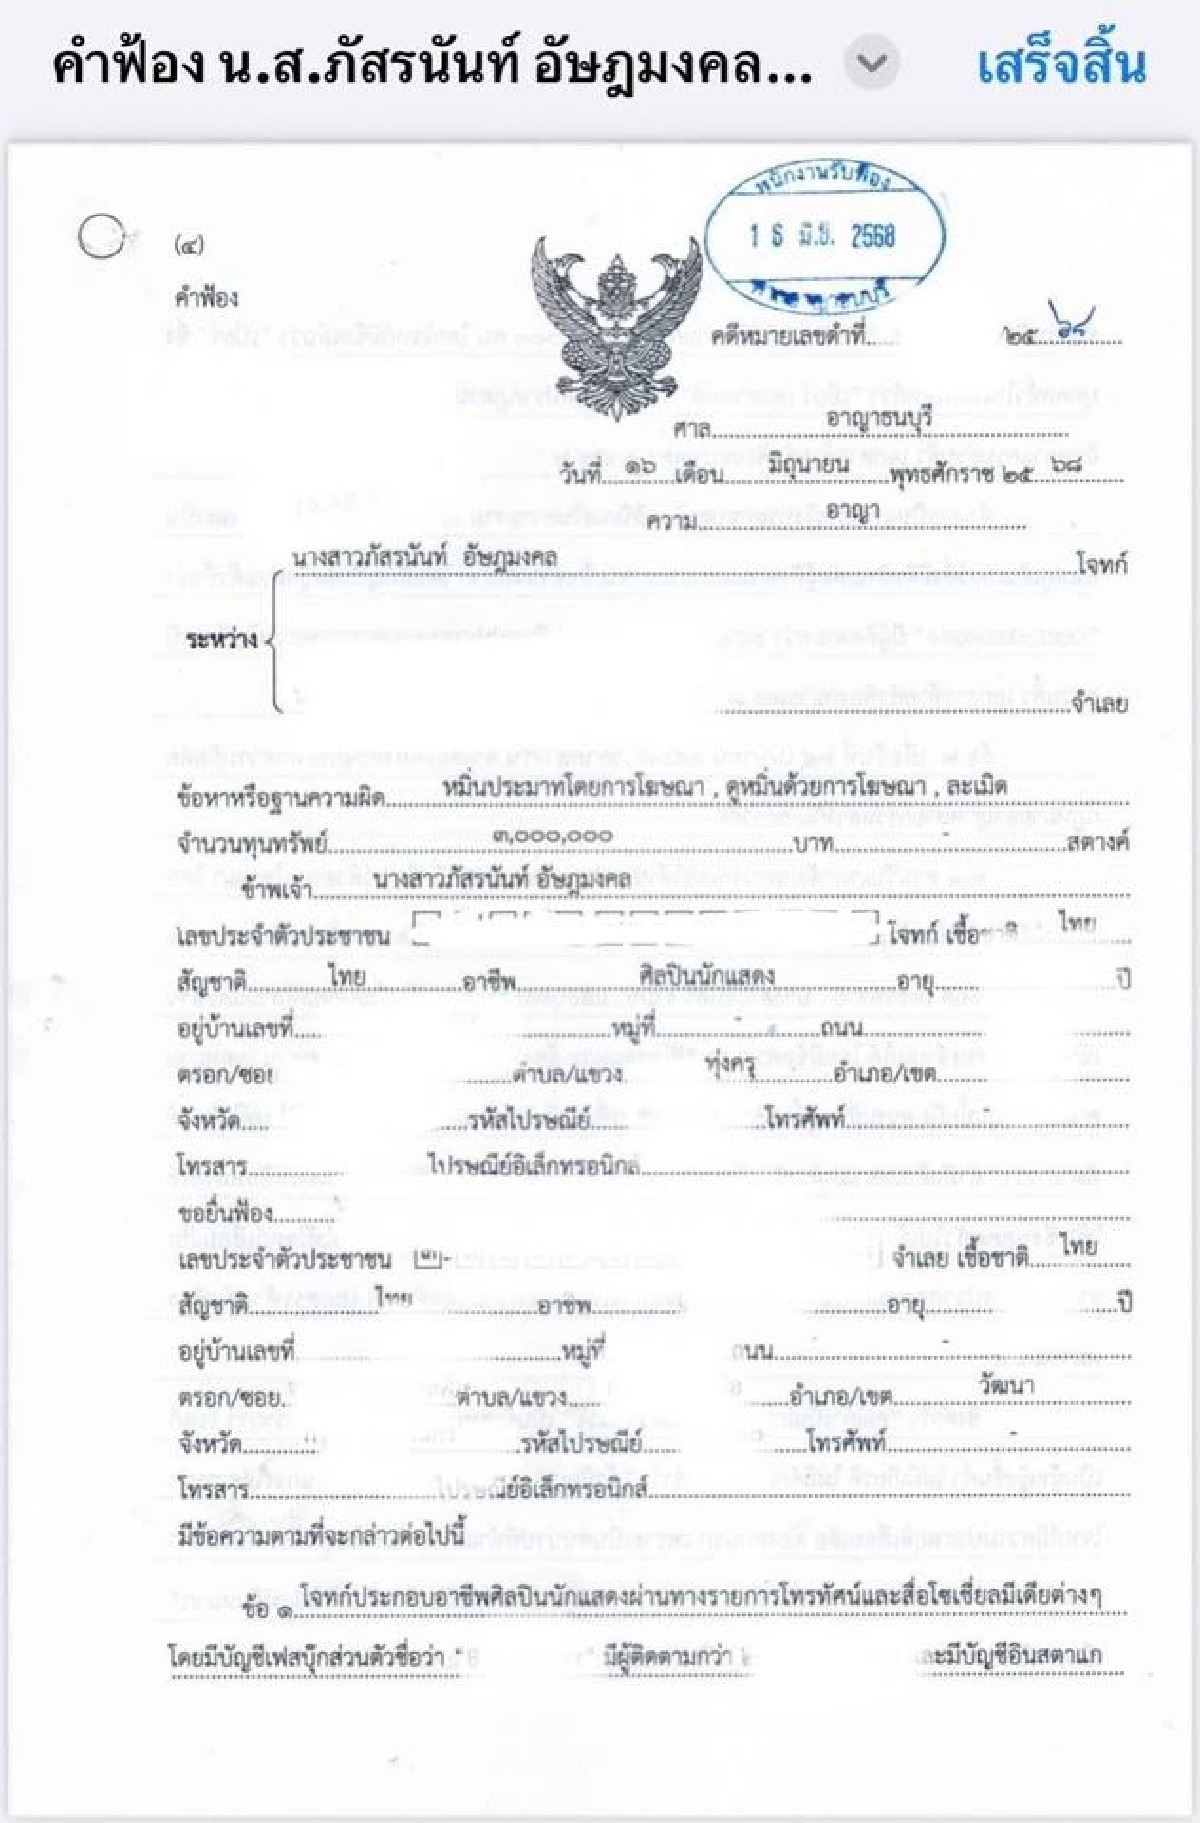 คำฟ้อง น.ส.ภัสรนันท์ อัษฎมงคล...
เสร็จสิ้น
พนักงานรับฟ้อง
16 มิ.ย. 2568
(๔)
คำฟ้อง
คดีหมายเลขดำที่.. /๒๕๖๘
ศาล อาญาธนบุรี
วันที่ ๑๖ เดือน มิถุนายน พุทธศักราช ๒๕ ๖๘
ความ อาญา
นางสาวภัสรนันท์ อัษฎมงคล โจทก์
ระหว่าง
จำเลย
ข้อหาหรือฐานความผิด หมิ่นประมาทโดยการโฆษณา , ดูหมิ่นด้วยการโฆษณา , ละเมิด
จำนวนทุนทรัพย์ ๓,๐๐๐,๐๐๐ บาท - สตางค์
ข้าพเจ้า นางสาวภัสรนันท์ อัษฎมงคล
เลขประจำตัวประชาชน โจทก์ เชื้อชาติ ไทย
สัญชาติ ไทย อาชีพ ศิลปินนักแสดง อายุ ปี
อยู่บ้านเลขที่ หมู่ที่ - ถนน
ตรอก/ซอย ตำบล/แขวง ทุ่งครุ อำเภอ/เขต
จังหวัด รหัสไปรษณีย์ โทรศัพท์ -
โทรสาร ไปรษณีย์อิเล็กทรอนิกส์
ขอยื่นฟ้อง
เลขประจำตัวประชาชน จำเลย เชื้อชาติ ไทย
สัญชาติ ไทย อาชีพ อายุ ปี
อยู่บ้านเลขที่ หมู่ที่ ถนน -
ตรอก/ซอย ตำบล/แขวง อำเภอ/เขต วัฒนา
จังหวัด รหัสไปรษณีย์ โทรศัพท์ -
โทรสาร ไปรษณีย์อิเล็กทรอนิกส์
มีข้อความตามที่จะกล่าวต่อไปนี้
ข้อ ๑ โจทก์ประกอบอาชีพศิลปินนักแสดงผ่านทางรายการโทรทัศน์และสื่อโซเชี่ยลมีเดียต่างๆ
โดยมีบัญชีเฟสบุ๊กส่วนตัวชื่อว่า " มีผู้ติดตามกว่า และมีบัญชีอินสตาแก